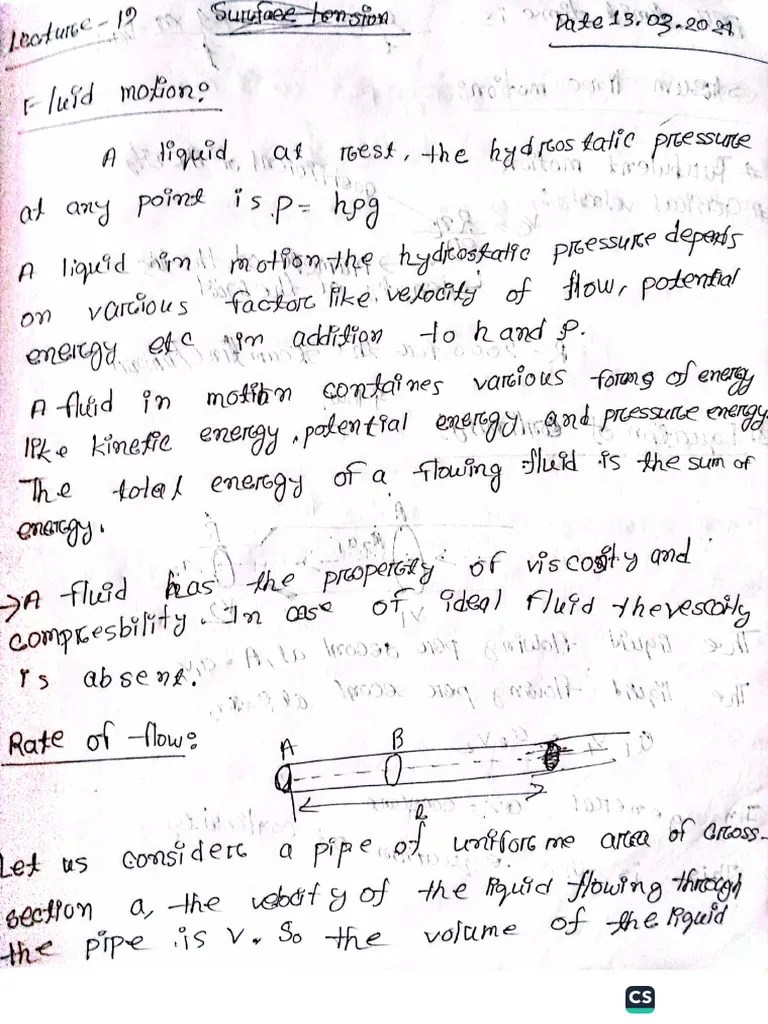 Lecture - 19
Surface tension
Date 13.03.2021
Fluid motion:
A liquid at rest, the hydrostatic pressure
at any point is p = hρg
A liquid in motion the hydrostatic pressure depends
on various factor like velocity of flow, potential
energy etc in addition to h and ρ.
A fluid in motion containes various forms of energy
like kinetic energy, potential energy and pressure energy.
The total energy of a flowing fluid is the sum of
energy.
→ A fluid has the property of viscosity and
compresbility. In case of ideal fluid the vescoity
is absent.
Rate of flow:
A B
l
Let us consider a pipe of uniforme area of cross-
section a, the velocity of the liquid flowing through
the pipe is v. So the volume of the liquid
CS